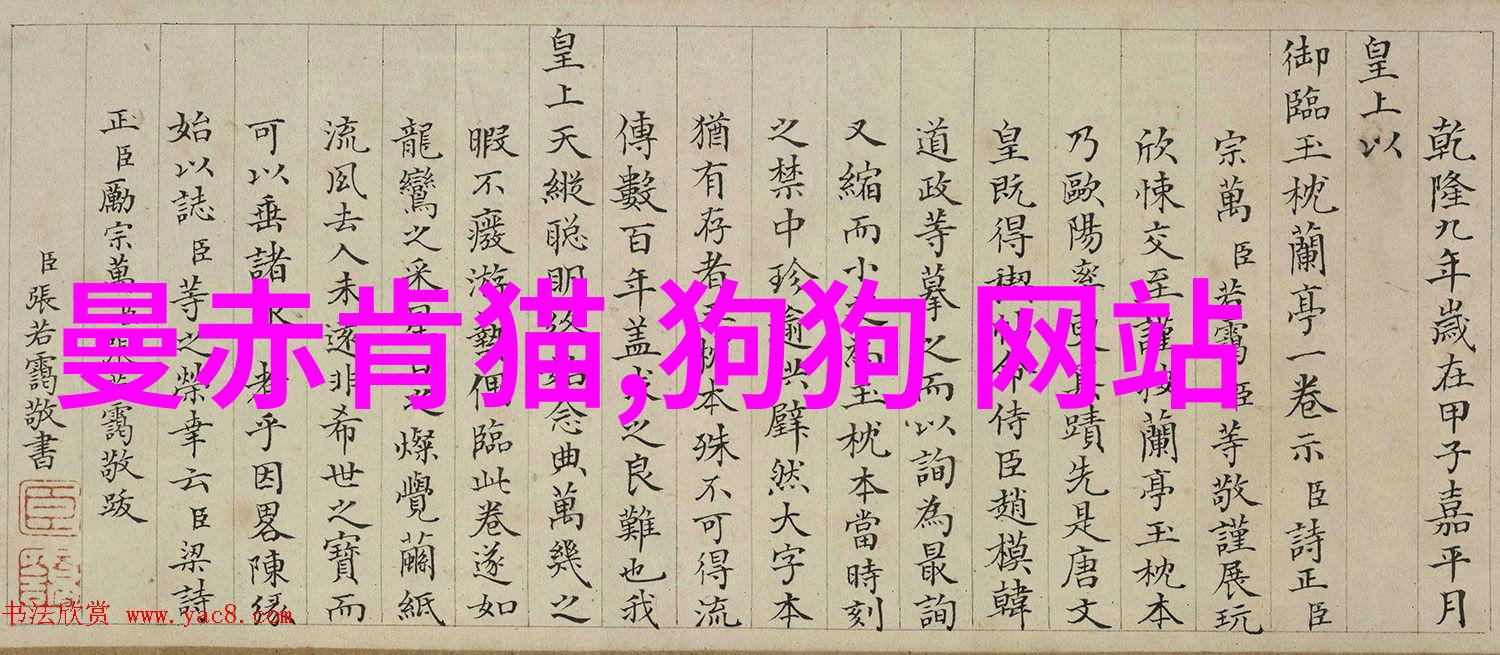 乾隆九年歲在甲子嘉平月
皇上以
御臨玉枕蘭亭一卷示臣詩正臣
宗萬臣若靄臣等敬謹展玩
欣悚交至謹按蘭亭玉枕本
乃歐陽率更真蹟先是唐文
皇既得禊帖命侍臣趙模韓
道政等摹之而以詢為最詢
又縮而小之玉枕本當時刻
之禁中珍踰共璧然大字本
猶有存者玉枕本殊不可得流
傳數百年盖求之良難也我
皇上天縱聰明終始念典萬幾之
暇不癈游藝偶臨此卷遂如
龍鸞之采星日之燦覺繭紙
流風去人未遠非希世之寶而
可以垂諸永者乎因畧陳緣
始以誌臣等之榮幸云臣梁詩
正臣勵宗萬臣張若靄敬跋
臣張若靄敬書
曼赤肯猫,狗狗 网站
书法欣赏 www.yac8.com